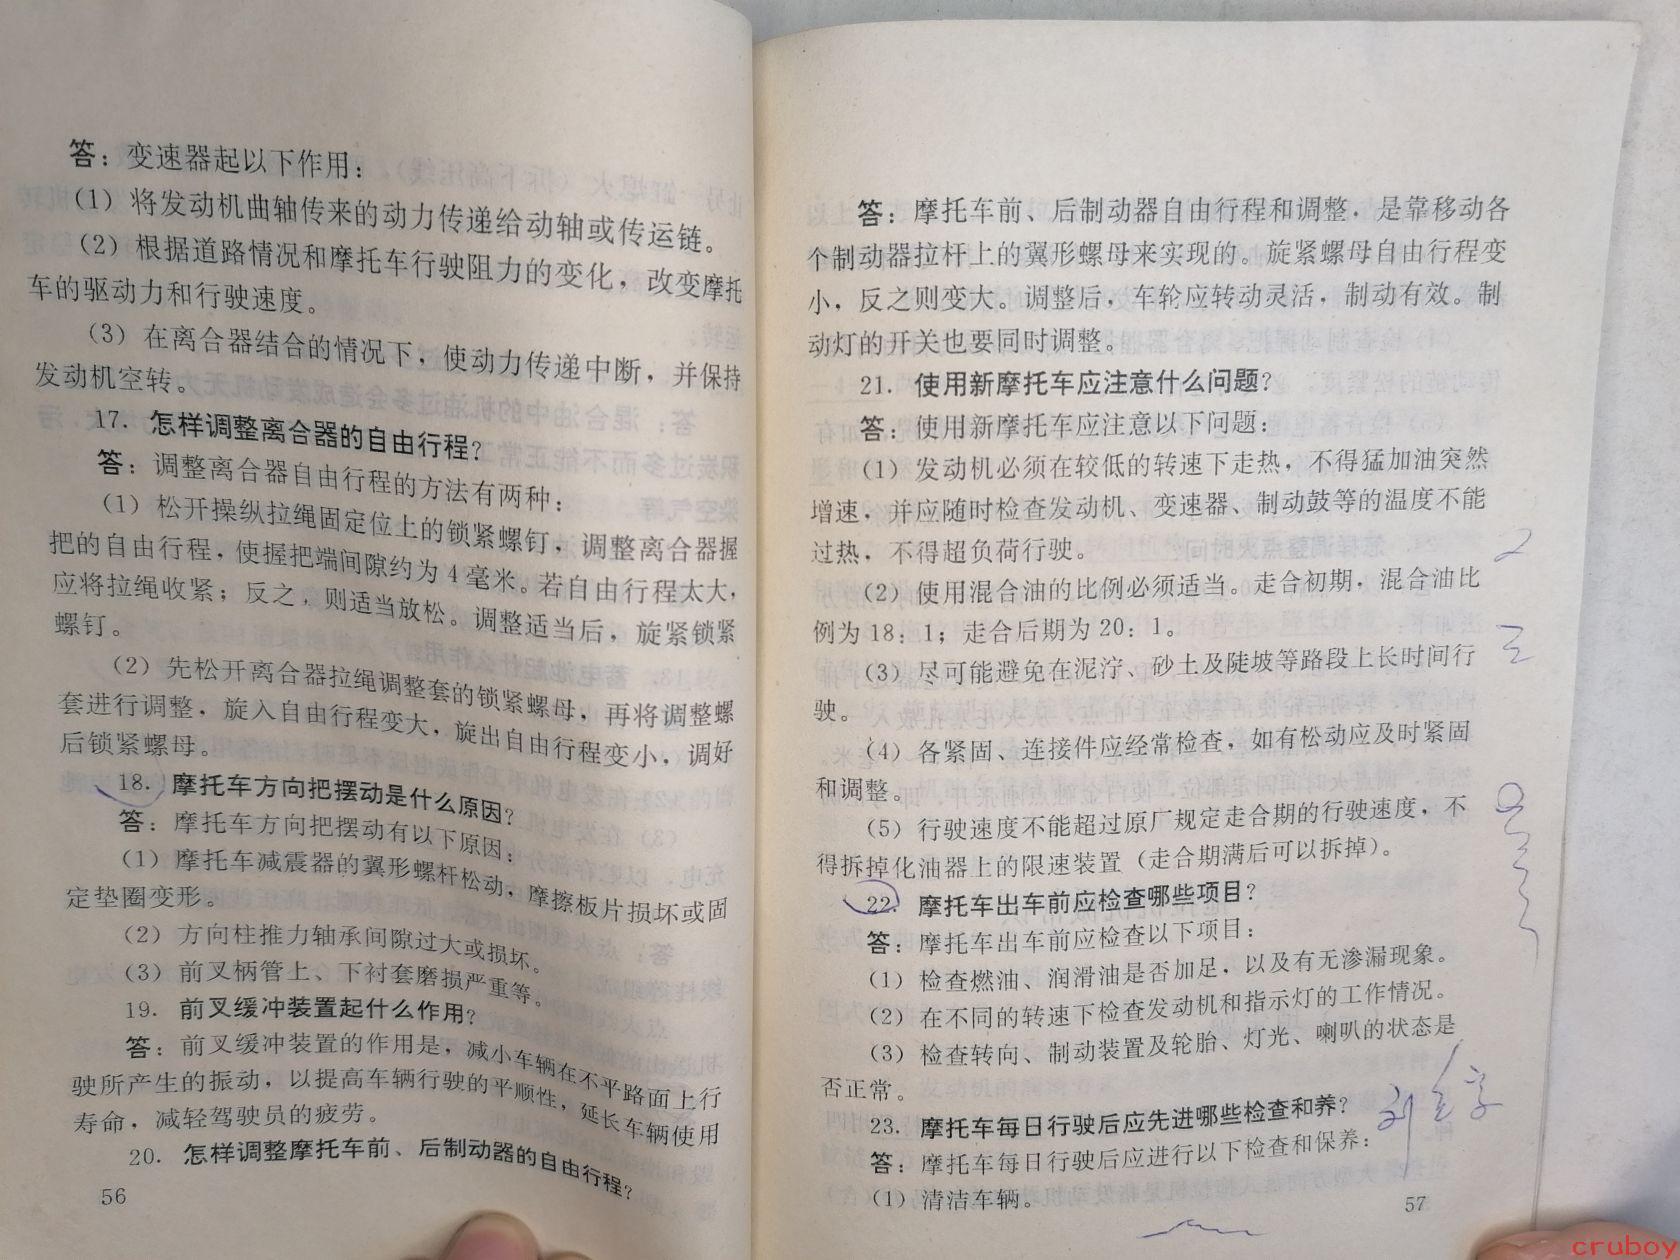 答：变速器起以下作用：
(1) 将发动机曲轴传来的动力传递给动轴或传运链。
(2) 根据道路情况和摩托车行驶阻力的变化，改变摩托
车的驱动力和行驶速度。
(3) 在离合器结合的情况下，使动力传递中断，并保持
发动机空转。
17. 怎样调整离合器的自由行程？
答：调整离合器自由行程的方法有两种：
(1) 松开操纵拉绳固定位上的锁紧螺钉，调整离合器握
把的自由行程，使握把端间隙约为4毫米。若自由行程太大，
应将拉绳收紧；反之，则适当放松。调整适当后，旋紧锁紧
螺钉。
(2) 先松开离合器拉绳调整套的锁紧螺母，再将调整螺
套进行调整，旋入自由行程变大，旋出自由行程变小，调好
后锁紧螺母。
18. 摩托车方向把摆动是什么原因？
答：摩托车方向把摆动有以下原因：
(1) 摩托车减震器的翼形螺杆松动，摩擦板片损坏或固
定垫圈变形。
(2) 方向柱推力轴承间隙过大或损坏。
(3) 前叉柄管上、下衬套磨损严重等。
19. 前叉缓冲装置起什么作用？
答：前叉缓冲装置的作用是，减小车辆在不平路面上行
驶所产生的振动，以提高车辆行驶的平顺性，延长车辆使用
寿命，减轻驾驶员的疲劳。
20. 怎样调整摩托车前、后制动器的自由行程？
56
答：摩托车前、后制动器自由行程和调整，是靠移动各
个制动器拉杆上的翼形螺母来实现的。旋紧螺母自由行程变
小，反之则变大。调整后，车轮应转动灵活，制动有效。制
动灯的开关也要同时调整。
21. 使用新摩托车应注意什么问题？
答：使用新摩托车应注意以下问题：
(1) 发动机必须在较低的转速下走热，不得猛加油突然
增速，并应随时检查发动机、变速器、制动鼓等的温度不能
过热，不得超负荷行驶。
(2) 使用混合油的比例必须适当。走合初期，混合油比
例为18：1；走合后期为20：1。
(3) 尽可能避免在泥泞、砂土及陡坡等路段上长时间行
驶。
(4) 各紧固、连接件应经常检查，如有松动应及时紧固
和调整。
(5) 行驶速度不能超过原厂规定走合期的行驶速度，不
得拆掉化油器上的限速装置（走合期满后可以拆掉）。
22. 摩托车出车前应检查哪些项目？
答：摩托车出车前应检查以下项目：
(1) 检查燃油、润滑油是否加足，以及有无渗漏现象。
(2) 在不同的转速下检查发动机和指示灯的工作情况。
(3) 检查转向、制动装置及轮胎、灯光、喇叭的状态是
否正常。
23. 摩托车每日行驶后应先进哪些检查和养？
答：摩托车每日行驶后应进行以下检查和保养：
(1) 清洁车辆。
57
cruboy